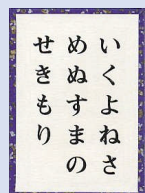 いくよねさ
めぬすまの
せきもり